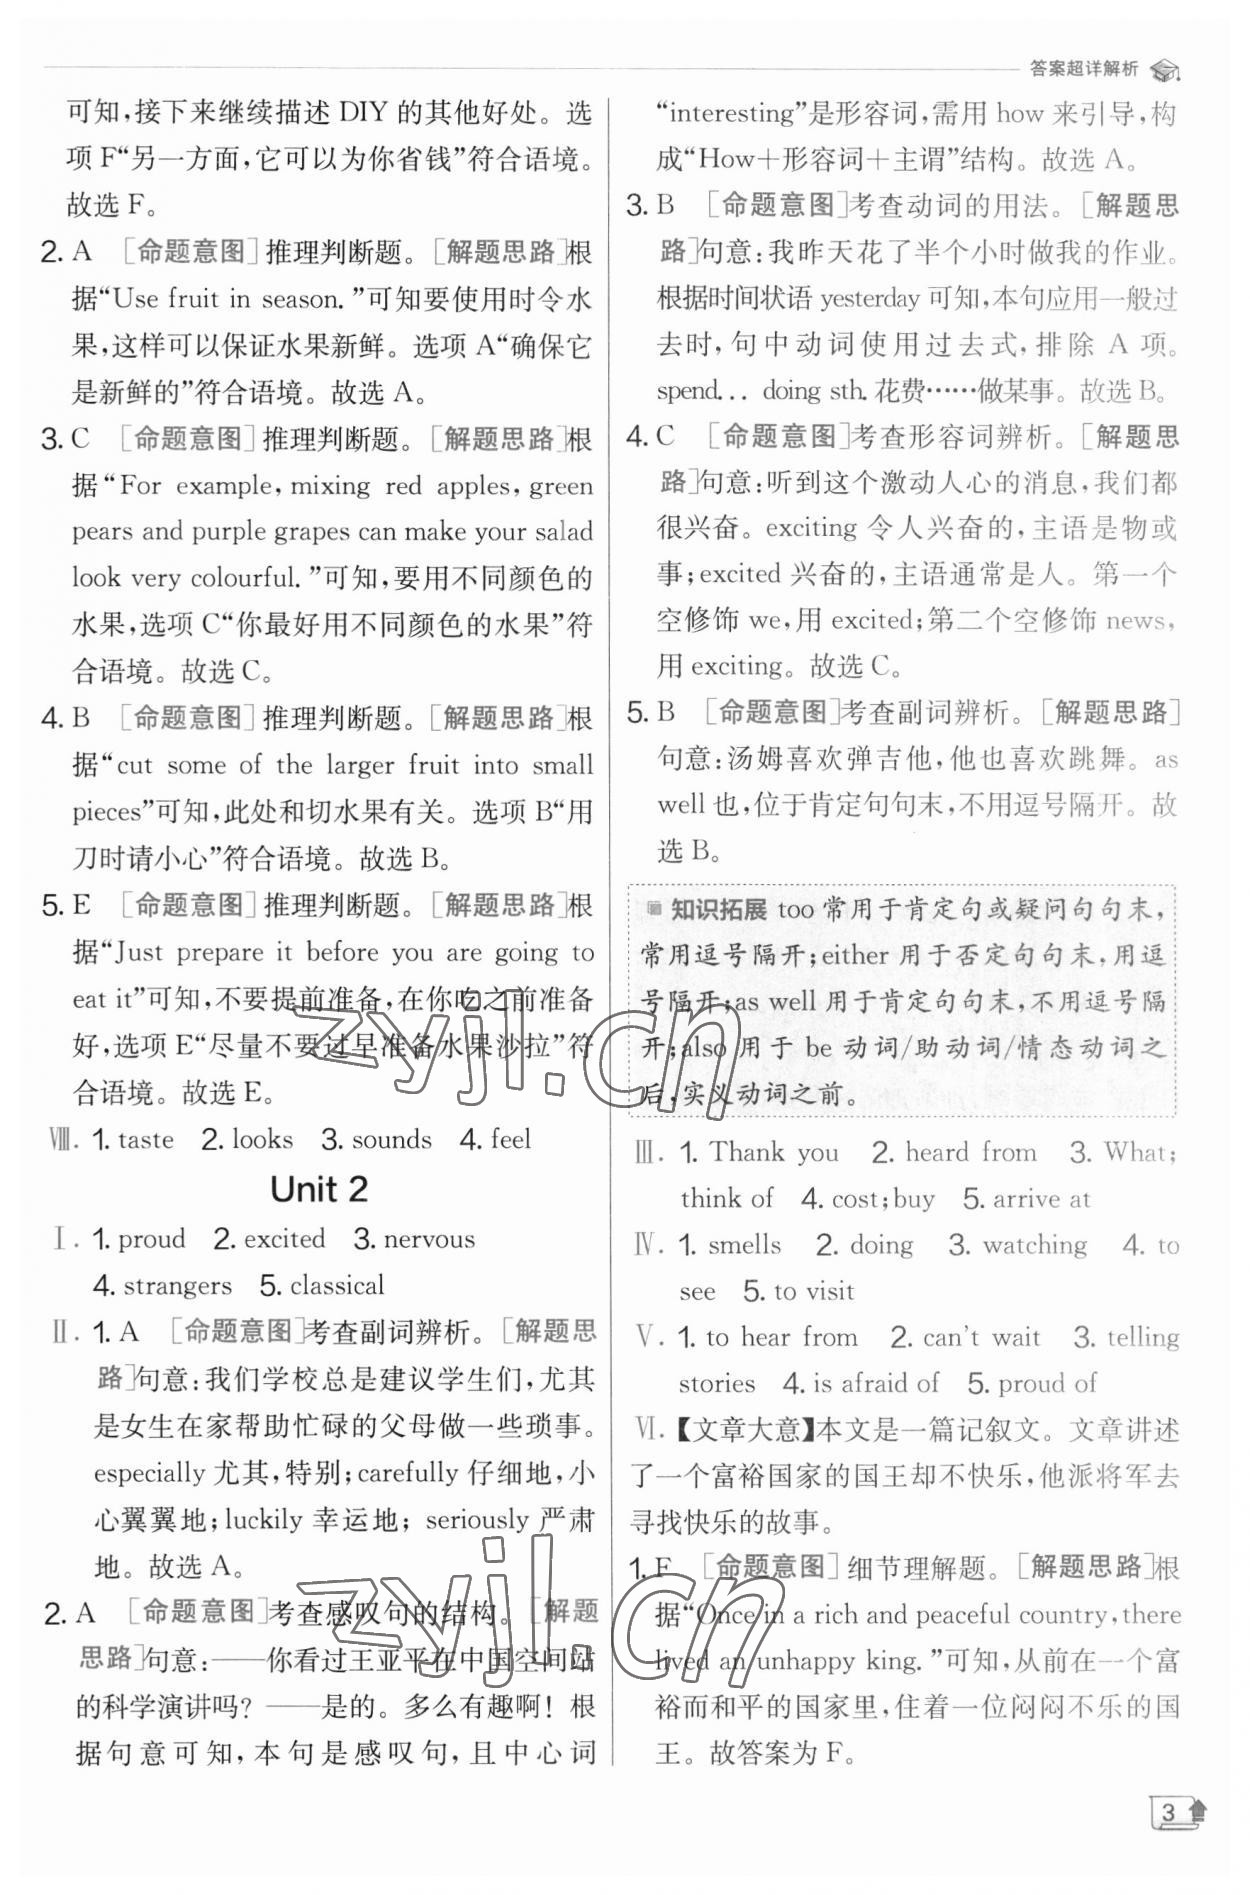 答案超详解析
可知,接下来继续描述 DIY 的其他好处。选
项 F“另一方面,它可以为你省钱”符合语境。
故选 F。
2. A ［命题意图］推理判断题。［解题思路］根
据“Use fruit in season.”可知要使用时令水
果,这样可以保证水果新鲜。选项 A“确保它
是新鲜的”符合语境。故选 A。
3. C ［命题意图］推理判断题。［解题思路］根
据“For example, mixing red apples, green
pears and purple grapes can make your salad
look very colourful.”可知,要用不同颜色的
水果,选项 C“你最好用不同颜色的水果”符
合语境。故选 C。
4. B ［命题意图］推理判断题。［解题思路］根
据“cut some of the larger fruit into small
pieces”可知,此处和切水果有关。选项 B“用
刀时请小心”符合语境。故选 B。
5. E ［命题意图］推理判断题。［解题思路］根
据“Just prepare it before you are going to
eat it”可知,不要提前准备,在你吃之前准备
好,选项 E“尽量不要过早准备水果沙拉”符
合语境。故选 E。
Ⅷ. 1. taste 2. looks 3. sounds 4. feel
Unit 2
Ⅰ. 1. proud 2. excited 3. nervous
4. strangers 5. classical
Ⅱ. 1. A ［命题意图］考查副词辨析。［解题思
路］句意:我们学校总是建议学生们,尤其
是女生在家帮助忙碌的父母做一些琐事。
especially 尤其,特别;carefully 仔细地,小
心翼翼地;luckily 幸运地; seriously 严肃
地。故选 A。
2. A ［命题意图］考查感叹句的结构。［解题
思路］句意:——你看过王亚平在中国空间站
的科学演讲吗? ——是的。多么有趣啊! 根
据句意可知,本句是感叹句,且中心词
“interesting”是形容词,需用 how 来引导,构
成“How+形容词+主谓”结构。故选 A。
3. B ［命题意图］考查动词的用法。［解题思
路］句意:我昨天花了半个小时做我的作业。
根据时间状语 yesterday 可知,本句应用一般过
去时,句中动词使用过去式,排除 A 项。
spend... doing sth. 花费……做某事。故选 B。
4. C ［命题意图］考查形容词辨析。［解题思
路］句意:听到这个激动人心的消息,我们都
很兴奋。exciting 令人兴奋的,主语是物或
事;excited 兴奋的,主语通常是人。第一个
空修饰 we,用 excited;第二个空修饰 news,
用 exciting。故选 C。
5. B ［命题意图］考查副词辨析。［解题思路］
句意:汤姆喜欢弹吉他,他也喜欢跳舞。as
well 也,位于肯定句句末,不用逗号隔开。故
选 B。
知识拓展 too 常用于肯定句或疑问句句末,
常用逗号隔开;either 用于否定句句末,用逗
号隔开;as well 用于肯定句句末,不用逗号隔
开;also 用于 be 动词/助动词/情态动词之
后,实义动词之前。
Ⅲ. 1. Thank you 2. heard from 3. What;
think of 4. cost;buy 5. arrive at
Ⅳ. 1. smells 2. doing 3. watching 4. to
see 5. to visit
Ⅴ. 1. to hear from 2. can't wait 3. telling
stories 4. is afraid of 5. proud of
Ⅵ.【文章大意】本文是一篇记叙文。文章讲述
了一个富裕国家的国王却不快乐,他派将军去
寻找快乐的故事。
1. F ［命题意图］细节理解题。［解题思路］根
据“Once in a rich and peaceful country, there
lived an unhappy king.”可知,从前在一个富
裕而和平的国家里,住着一位闷闷不乐的国
王。故答案为 F。
3
zyjl.cn
zyjl.cn